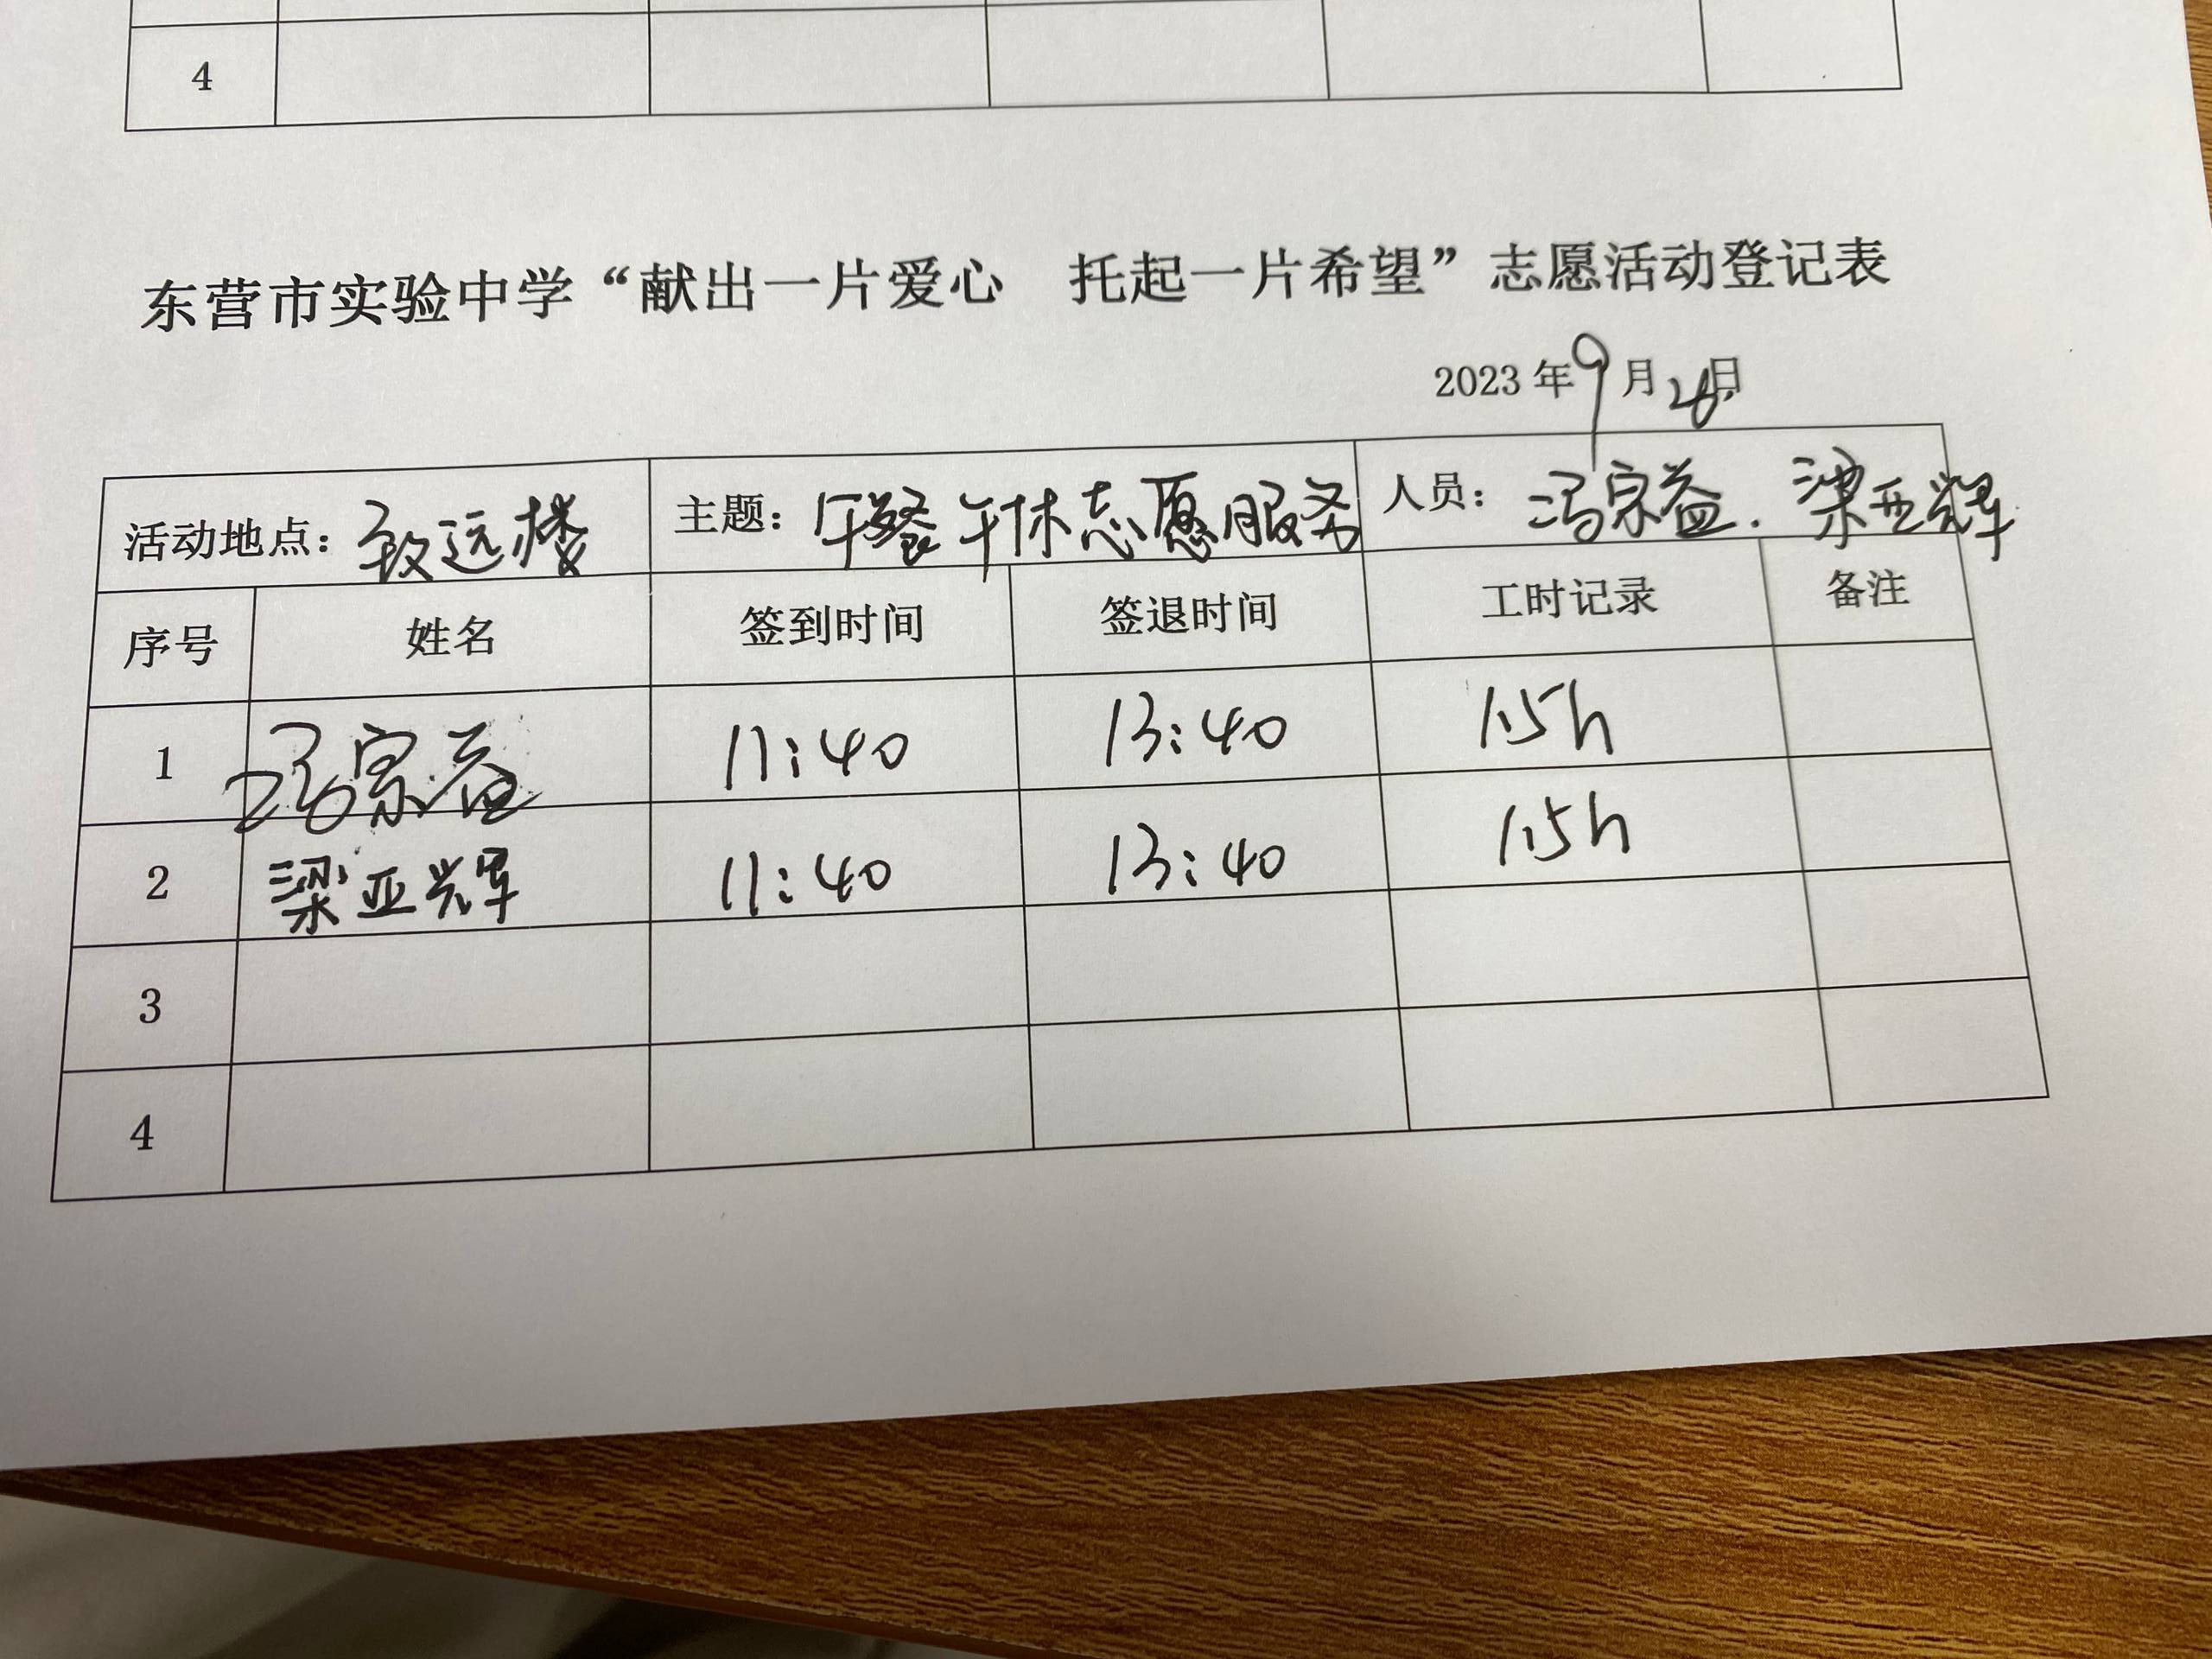 4
东营市实验中学“献出一片爱心 托起一片希望”志愿活动登记表
2023年9月 日
活动地点：致远楼 主题：午餐午休志愿服务 人员：冯宗益．梁亚辉
序号 姓名 签到时间 签退时间 工时记录 备注
1 冯宗益 11:40 13:40 1.5h
2 梁亚辉 11:40 13:40 1.5h
3
4